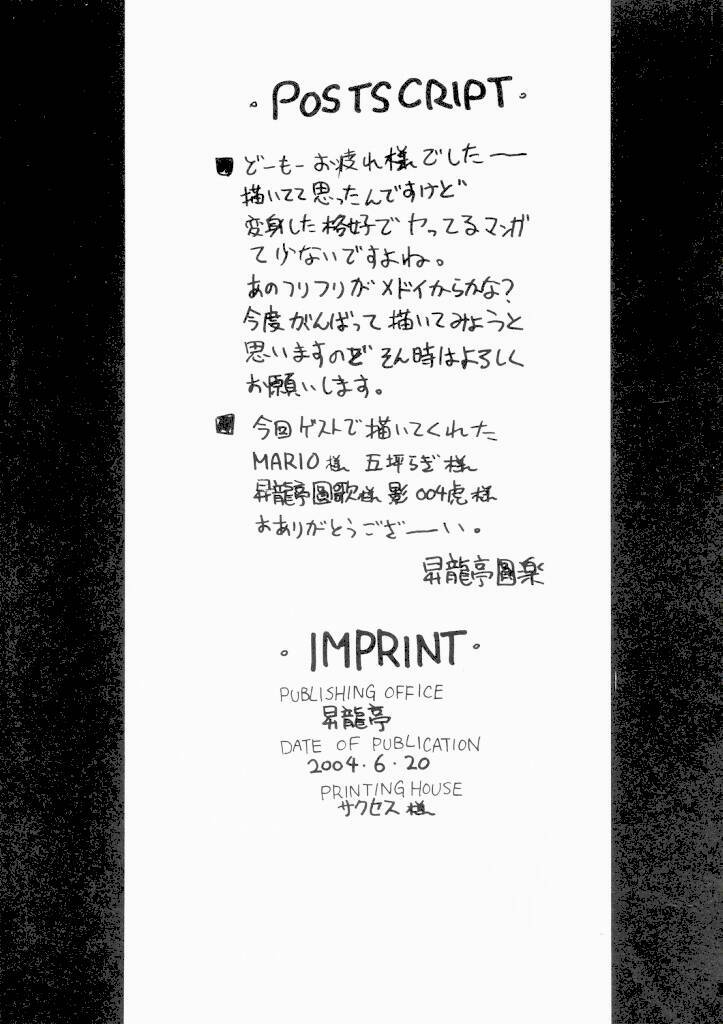 ・POSTSCRIPT・
■ どーもー お疲れ様でしたー
描いてて思ったんですけど
変身した格好でヤッてるマンガ
て少ないですよね。
あのフリフリがメドイからかな?
今度がんばって描いてみようと
思いますのど そん時はよろしく
お願いします。
■ 今回ゲストで描いてくれた
MARIO様 五坪らぎ様
昇龍亭圓歌様 影004虎様
おありがとうござーい。
昇龍亭圓楽
・IMPRINT・
PUBLISHING OFFICE
昇龍亭
DATE OF PUBLICATION
2004・6・20
PRINTING HOUSE
サクセス様